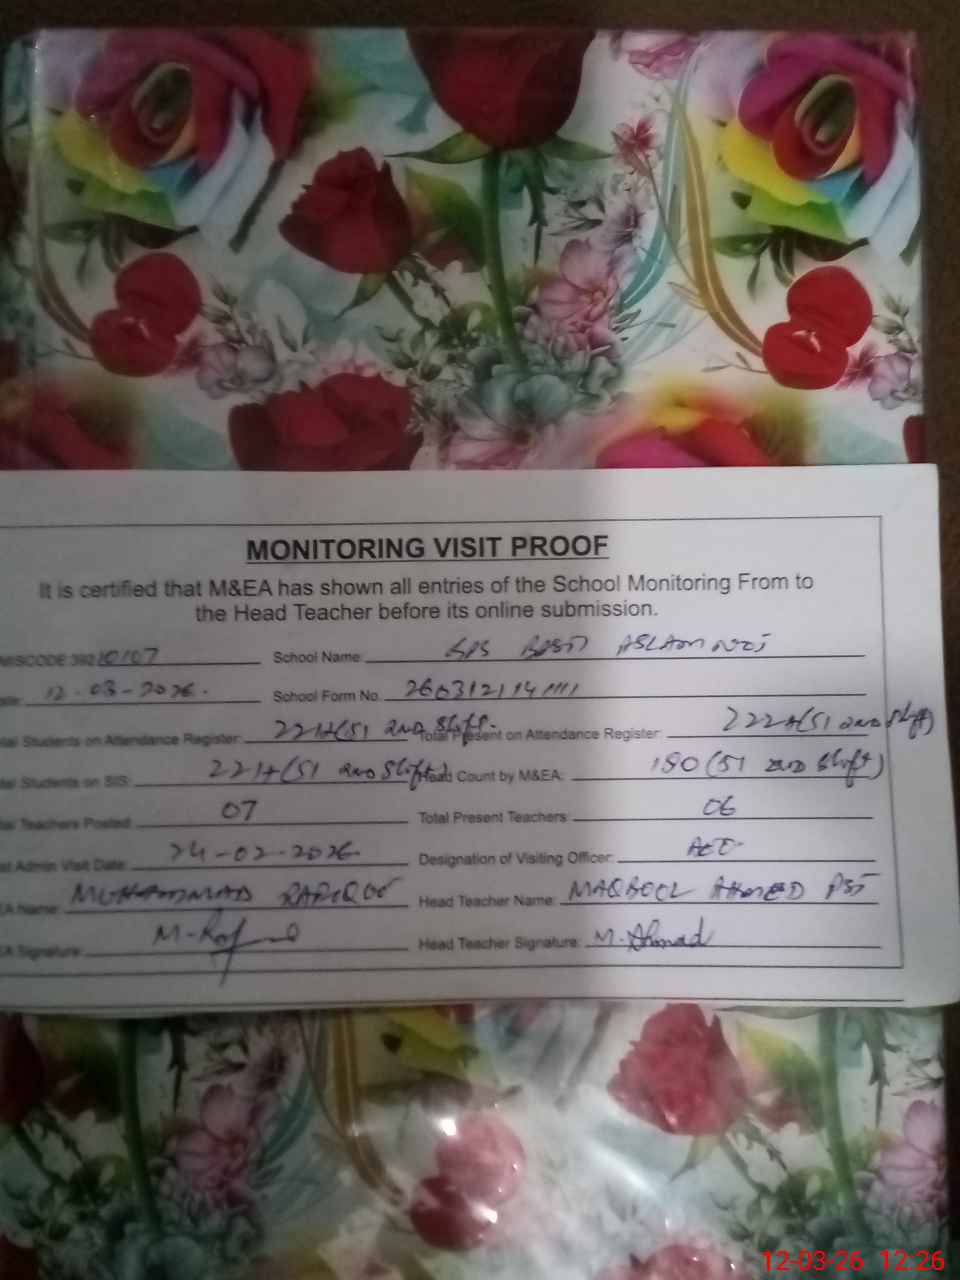 MONITORING VISIT PROOF
It is certified that M&EA has shown all entries of the School Monitoring From to
the Head Teacher before its online submission.
MISCODE:392 10107 School Name: GPS BASTI ASLAM
12-03-2026. School Form No.
Students on Attendance Register: 221+(51 2nd Shift. Total Present on Attendance Register: 222+(51 2nd Shift)
Students on SIS: 221+(51 2nd Shift) Head Count by M&EA: 180 (51 2nd Shift)
Teachers Posted: 07 Total Present Teachers: 06
Admin Visit Date: 24-02-2026. Designation of Visiting Officer: AEO
Name: MUHAMMAD Head Teacher Name: MAQBOOL AHMED PST
Signature: Head Teacher Signature: M. Ahmad
12-03-26 12:26